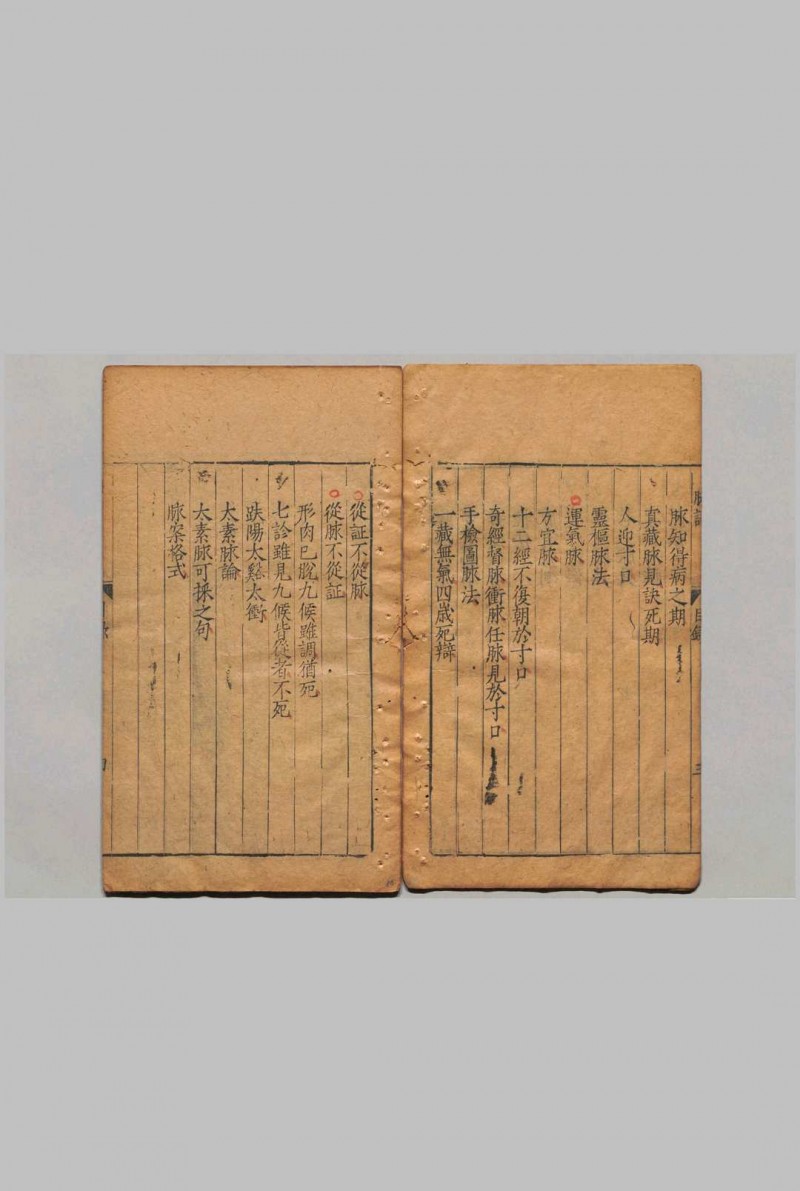 脉知得病之期
真藏脉見訣死期
人迎寸口
靈樞脉法
運氣脉
方宜脉
十二經不復朝於寸口
奇經督脉衝脉任脉見於寸口
手檢圖脉法
一藏無氣四歲死辯
從証不從脉
從脉不從証
形肉已脫九候雖調猶死
七診雖見九候皆從者不死
趺陽太谿太衝
太素脉論
太素脉可採之句
脉案格式